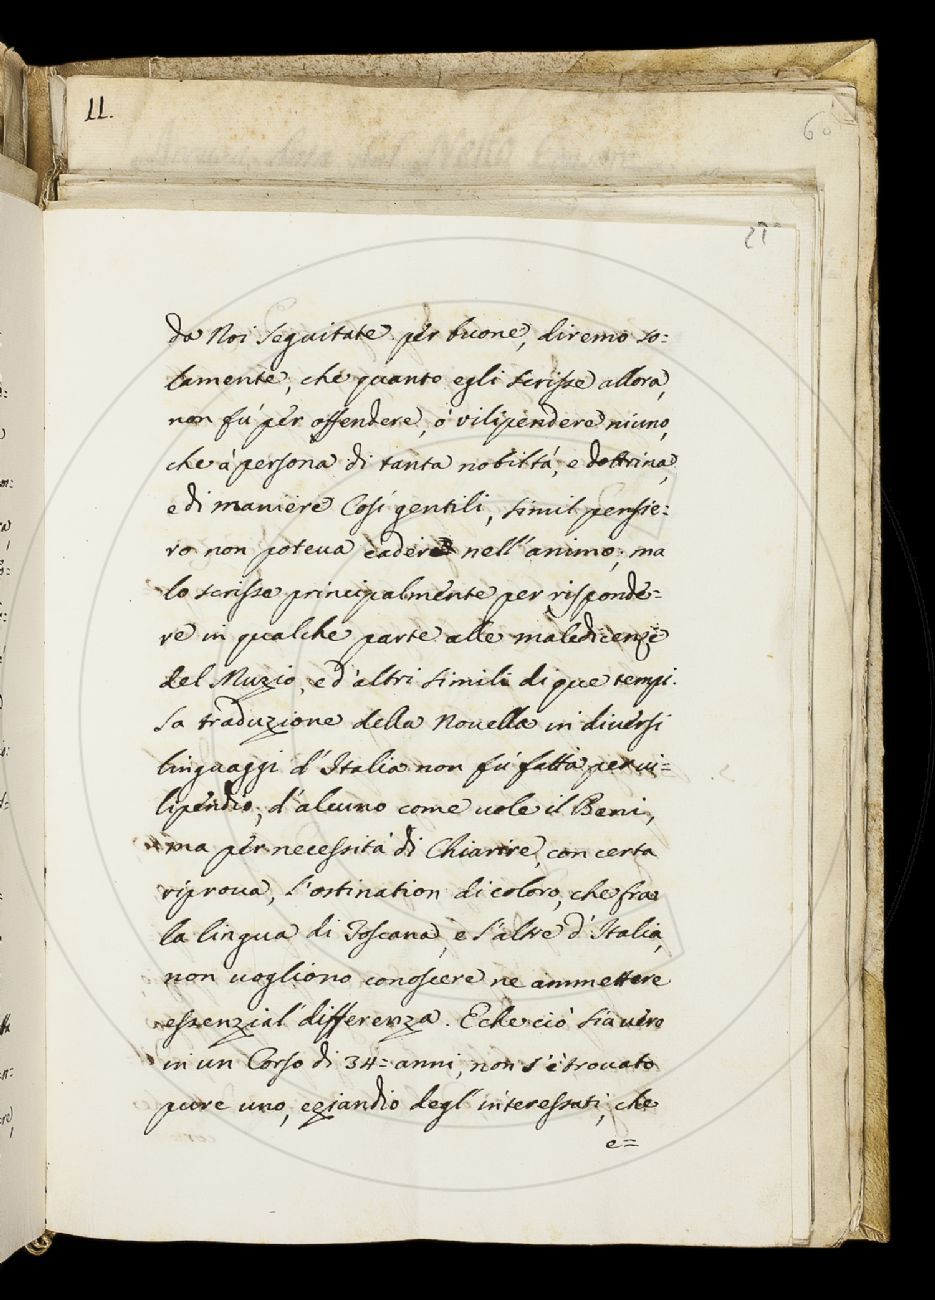 11.
60
da Noi seguitate per buone, diremo so=
lamente, che quanto egli scrisse allora,
non fù per offendere, ò vilipendere niuno,
che à persona di tanta nobiltà, e dottrina,
e di maniere Così gentili, simil pensie=
ro non poteua cadere nell'animo; ma
lo scrisse principalmente per risponde=
re in qualche parte alle maledicenze
del Muzio, e d'altri simili di que tempi.
La traduzione della Nouella in diuersi
linguaggi d'Italia non fù fatta per ui=
lipendio, d'alcuno come uole il Beni,
ma per necessità di Chiarire, con certa
riproua, l'ostination di coloro, che fra
la lingua di Toscana, e l'altre d'Italia,
non uogliono conoscere ne ammettere
essenzial' differenza. E che ciò sia uero
in un Corso di 34= anni, non s'è trouato
pure uno, eziandio degl'interessati, che
e=